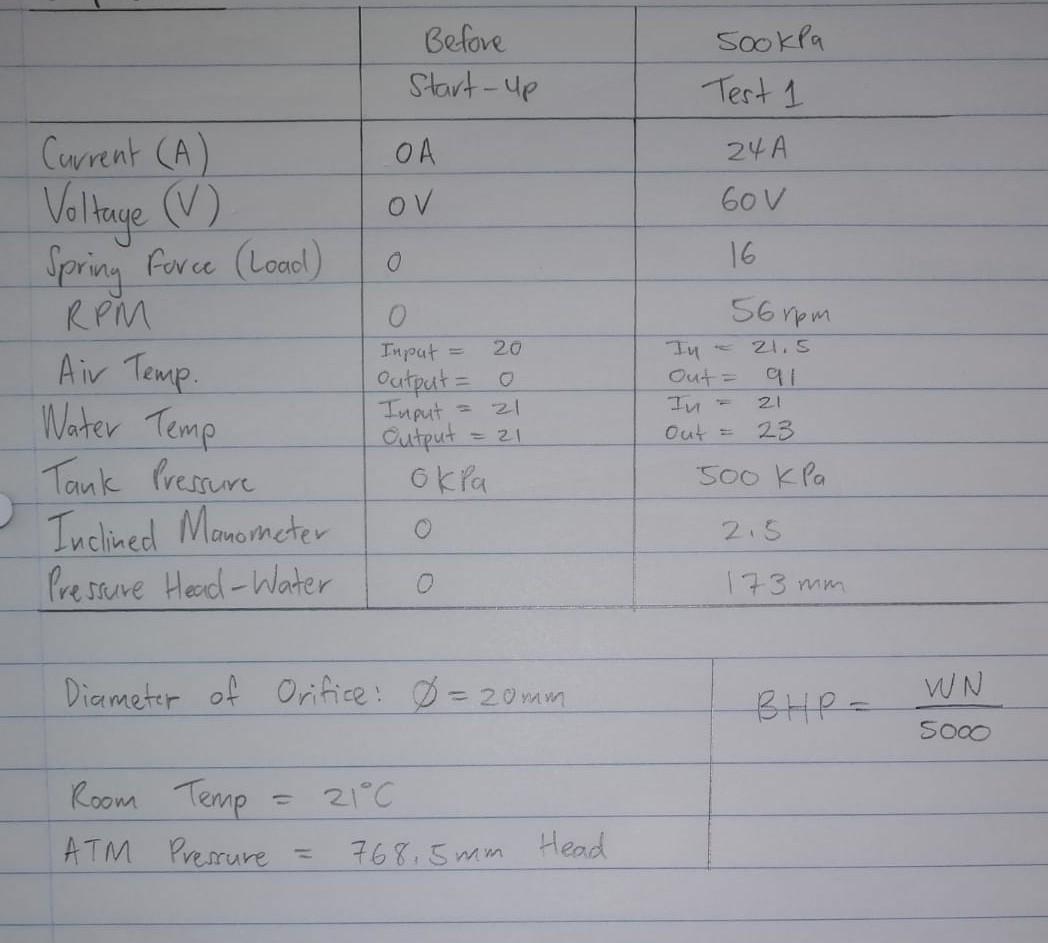 Before 500kPa
Start-up Test 1
Current (A) 0A 24A
Voltage (V) 0V 60V
Spring Force (Load) 0 16
RPM 0 56rpm
Air Temp. Input = 20 In = 21.5
Output = 0 Out = 91
Water Temp Input = 21 In = 21
Output = 21 Out = 23
Tank Pressure 0kPa 500 kPa
Inclined Manometer 0 2.5
Pressure Head-Water 0 173mm
Diameter of Orifice: Ø = 20mm BHP = WN
5000
Room Temp = 21°C
ATM Pressure = 768.5mm Head